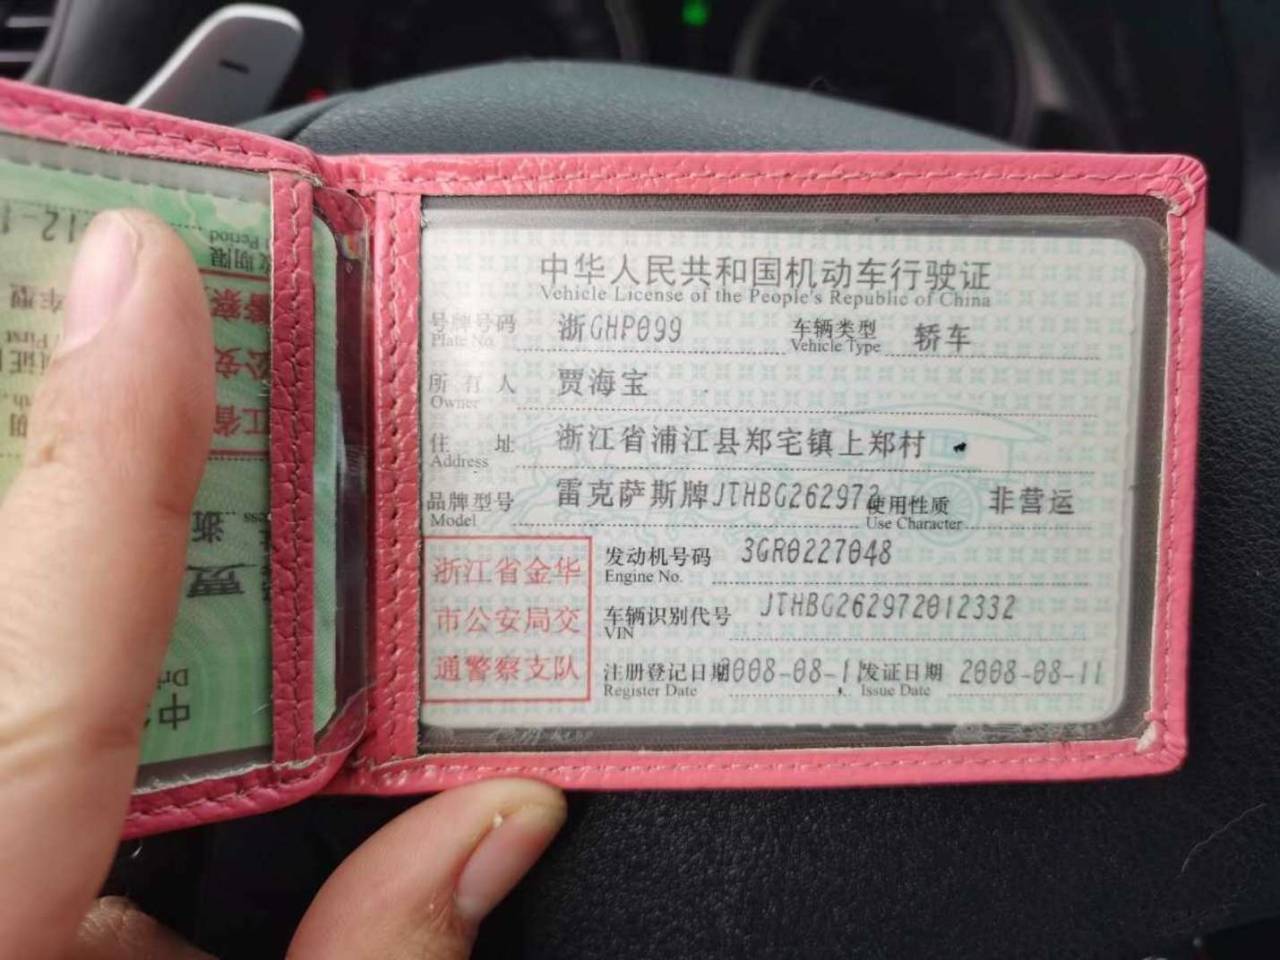 中华人民共和国机动车行驶证
Vehicle License of the People's Republic of China
号牌号码 浙GHP099 车辆类型 轿车
Plate No. Vehicle Type
所有人 贾海宝
Owner
住址 浙江省浦江县郑宅镇上郑村
Address
品牌型号 雷克萨斯牌JTHBG262972 使用性质 非营运
Model Use Character
浙江省金华
市公安局交
通警察支队
发动机号码 3GR0227048
Engine No.
车辆识别代号 JTHBG262972012332
VIN
注册登记日期 2008-08-11 发证日期 2008-08-11
Register Date Issue Date